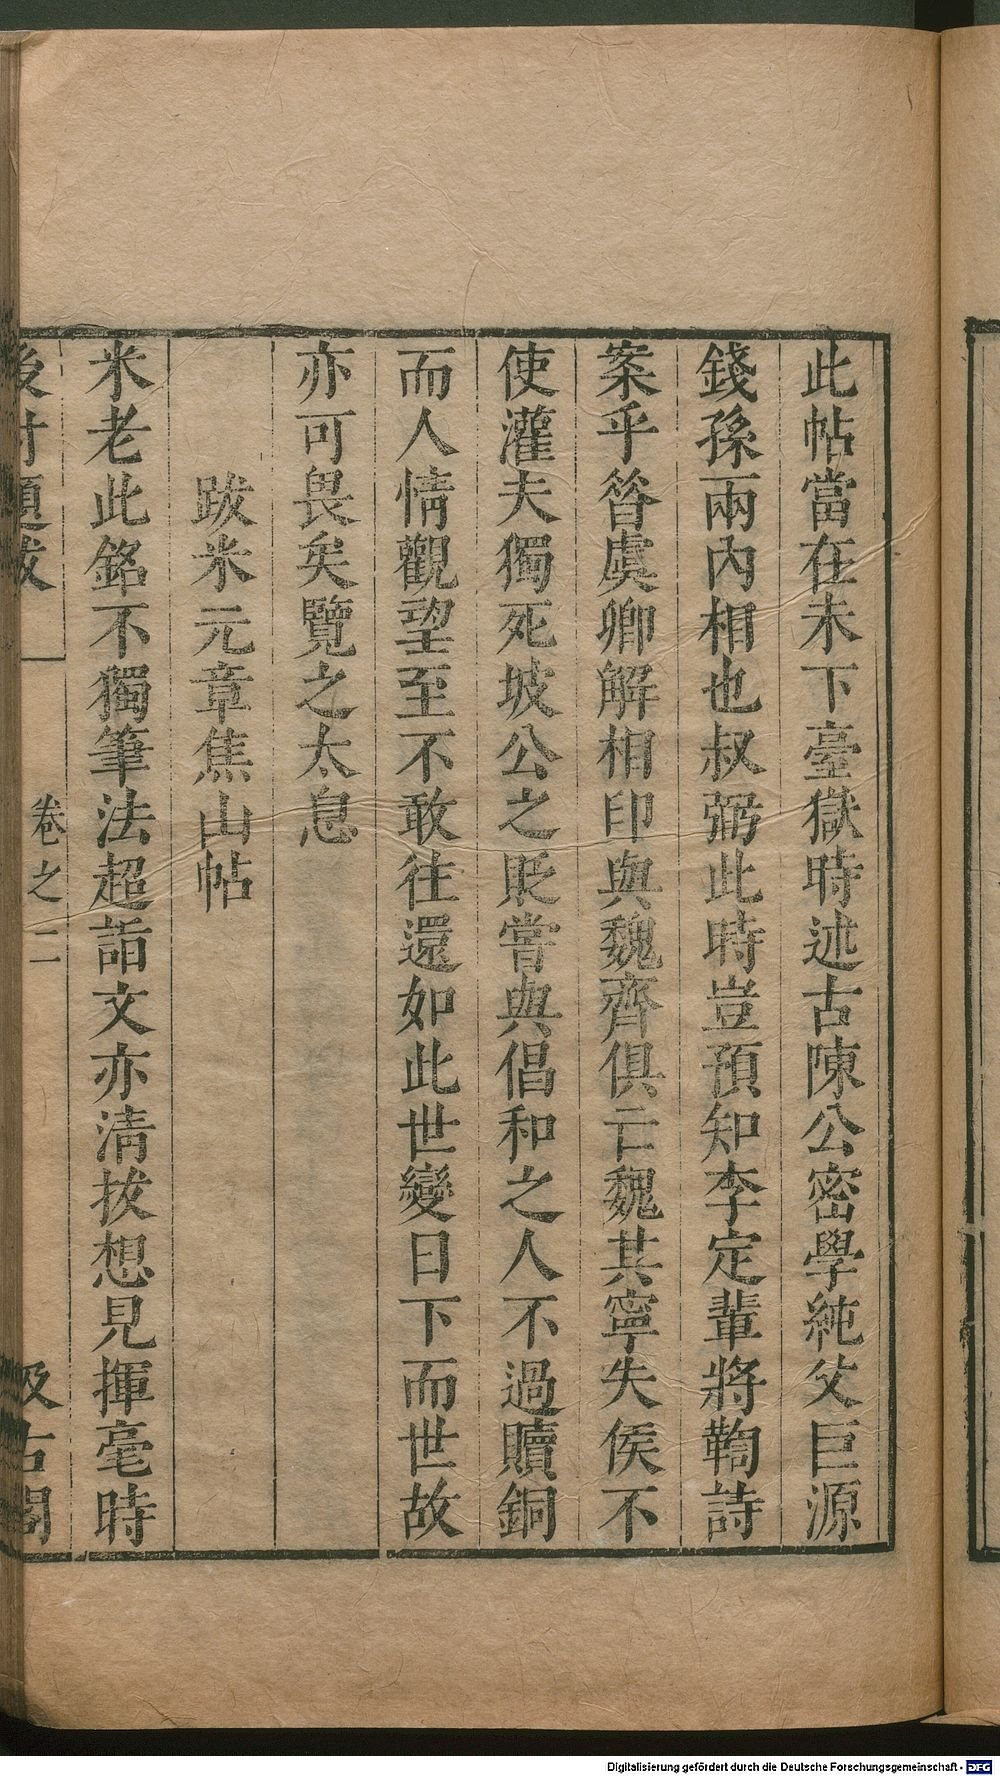 此帖當在未下臺獄時述古陳公密學純父巨源
錢孫兩內相也叔弼此時豈預知李定輩將鞫詩
案乎昝虞卿解相印與魏齊俱亡魏其寧失侯不
使灌夫獨死坡公之貶嘗與倡和之人不過贖銅
而人情觀望至不敢往還如此世變日下而世故
亦可畏矣覽之太息
跋米元章焦山帖
米老此銘不獨筆法超詣文亦淸拔想見揮毫時
後村題跋
卷之二
汲古閣
Digitalisierung gefördert durch die Deutsche Forschungsgemeinschaft - DFG